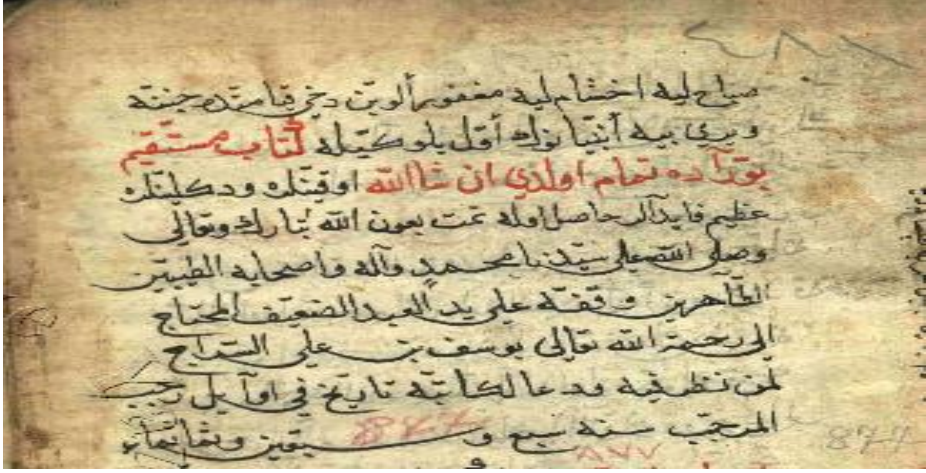 صباح ليه اخشام ليه مغفور ألوبن دخي قيامتده جنته
ويري بيه أنبيا نورك أقل بلو كتيله كتاب مستقيم
بوراده تمام اولدي ان شاالله اوقينلره ودكلينلره
عظيم فايدالر حاصل اوله تمت بعون الله تبارك وتعالى
وصلى الله على سيدنا محمد وآله واصحابه الطيبين
الطاهرين وقفه على يد العبد الضعيف المحتاج
إلى رحمة الله تعالى يوسف بن على السراج
لمن نظر فيه ودعا لكاتبه تاريخ في اوآيل رجب
المرجب سنة سبع وسبعين وثمانمايه
877
٨٧٧
877